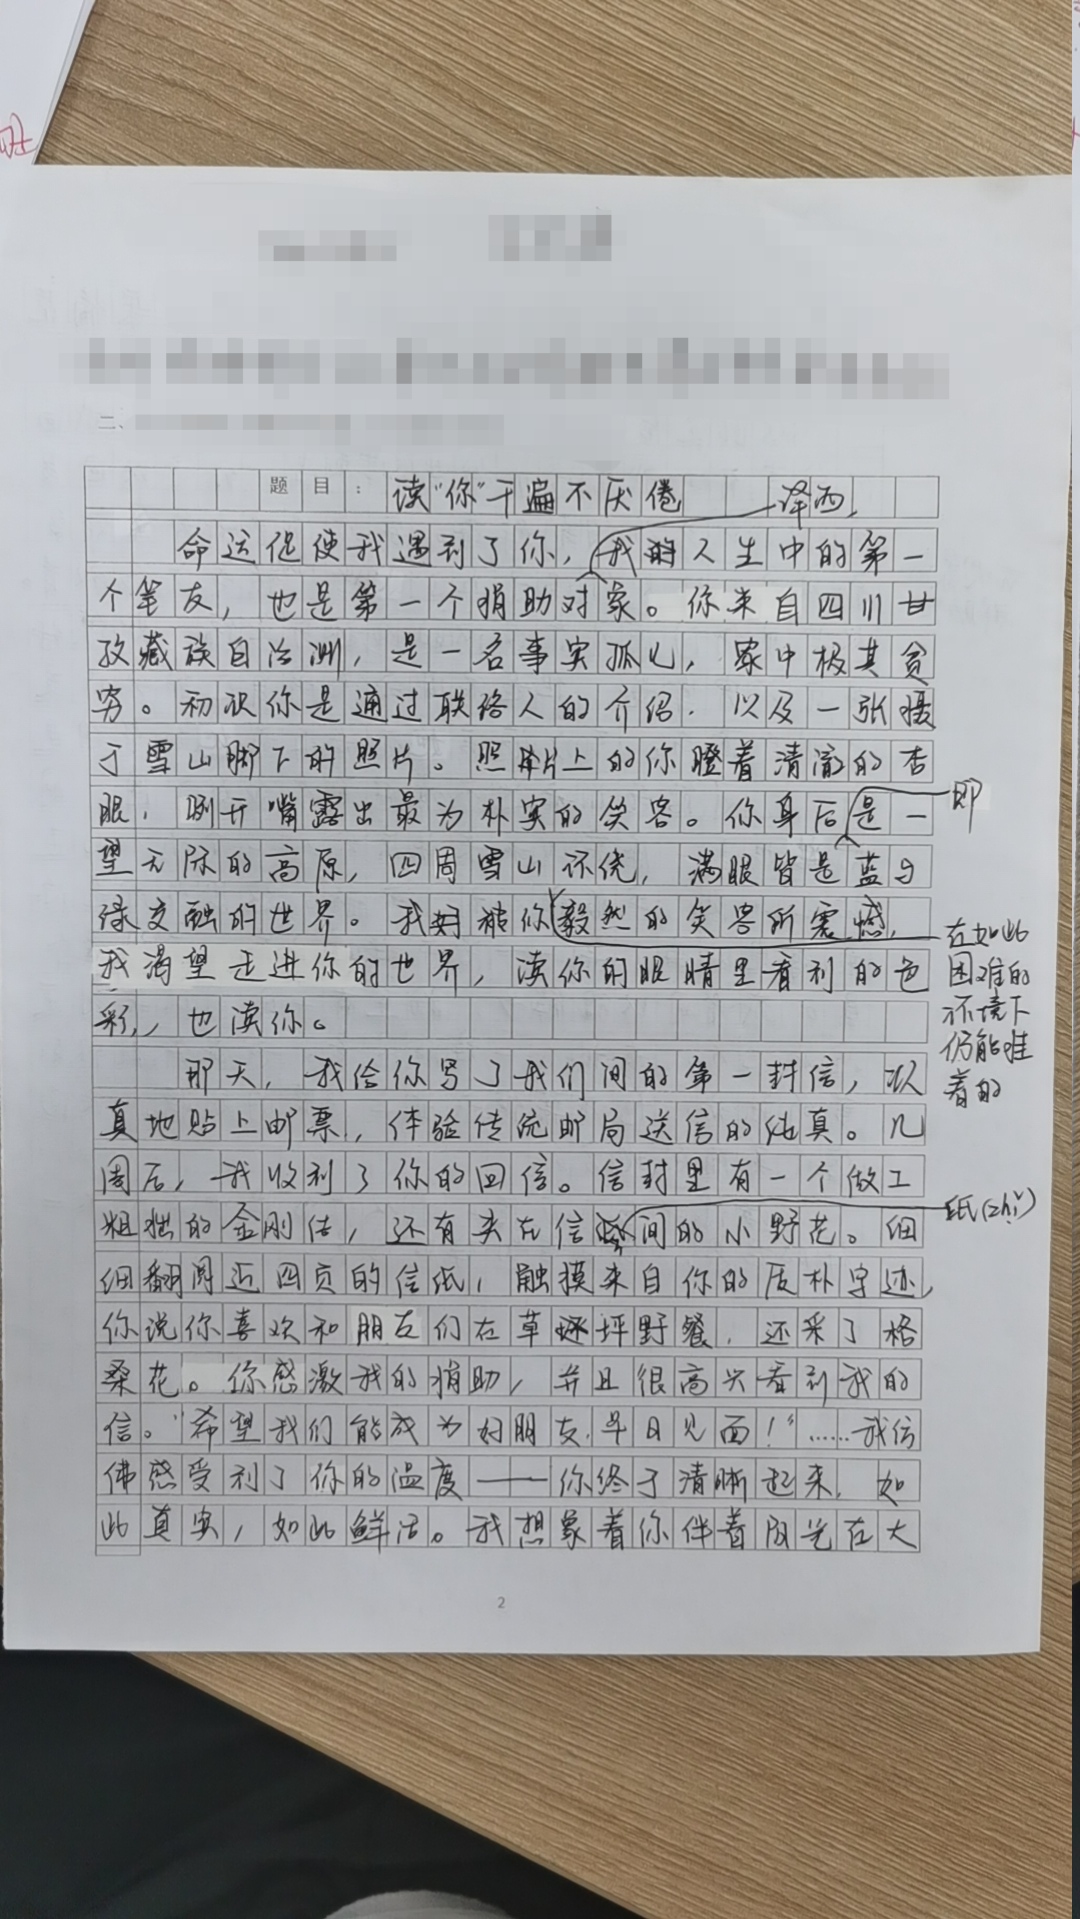 二、
题目：读“你”千遍不厌倦
泽西，
命运促使我遇到了你，我人生中的第一
个笔友，也是第一个捐助对象。你来自四川甘
孜藏族自治洲，是一名事实孤儿，家中极其贫
穷。初识你是通过联络人的介绍，以及一张摄
于雪山脚下的照片。照片上的你瞪着清澈的杏
眼，咧开嘴露出最为朴实的笑容。你身后是一
即
望无际的高原，四周雪山环绕，满眼皆是蓝与
绿交融的世界。我被你毅然的笑容所震憾，
在如此
困难的
环境下
仍能难
着的
我渴望走进你的世界，读你的眼睛里看到的色
彩，也读你。
那天，我给你写了我们间的第一封信，认
真地贴上邮票，体验传统邮局送信的纯真。几
周后，我收到了你的回信。信封里有一个做工
粗拙的金刚结，还有夹在信间的小野花。细
纸(zhǐ)
细翻阅近四页的信纸，触摸来自你的质朴字迹，
你说你喜欢和朋友们在草坪野餐，还采了格
桑花。你感激我的捐助，并且很高兴看到我的
信。“希望我们能成为好朋友，早日见面！”……我仿
佛感受到了你的温度——你终于清晰起来，如
此真实，如此鲜活。我想象着你伴着阳光在大
2